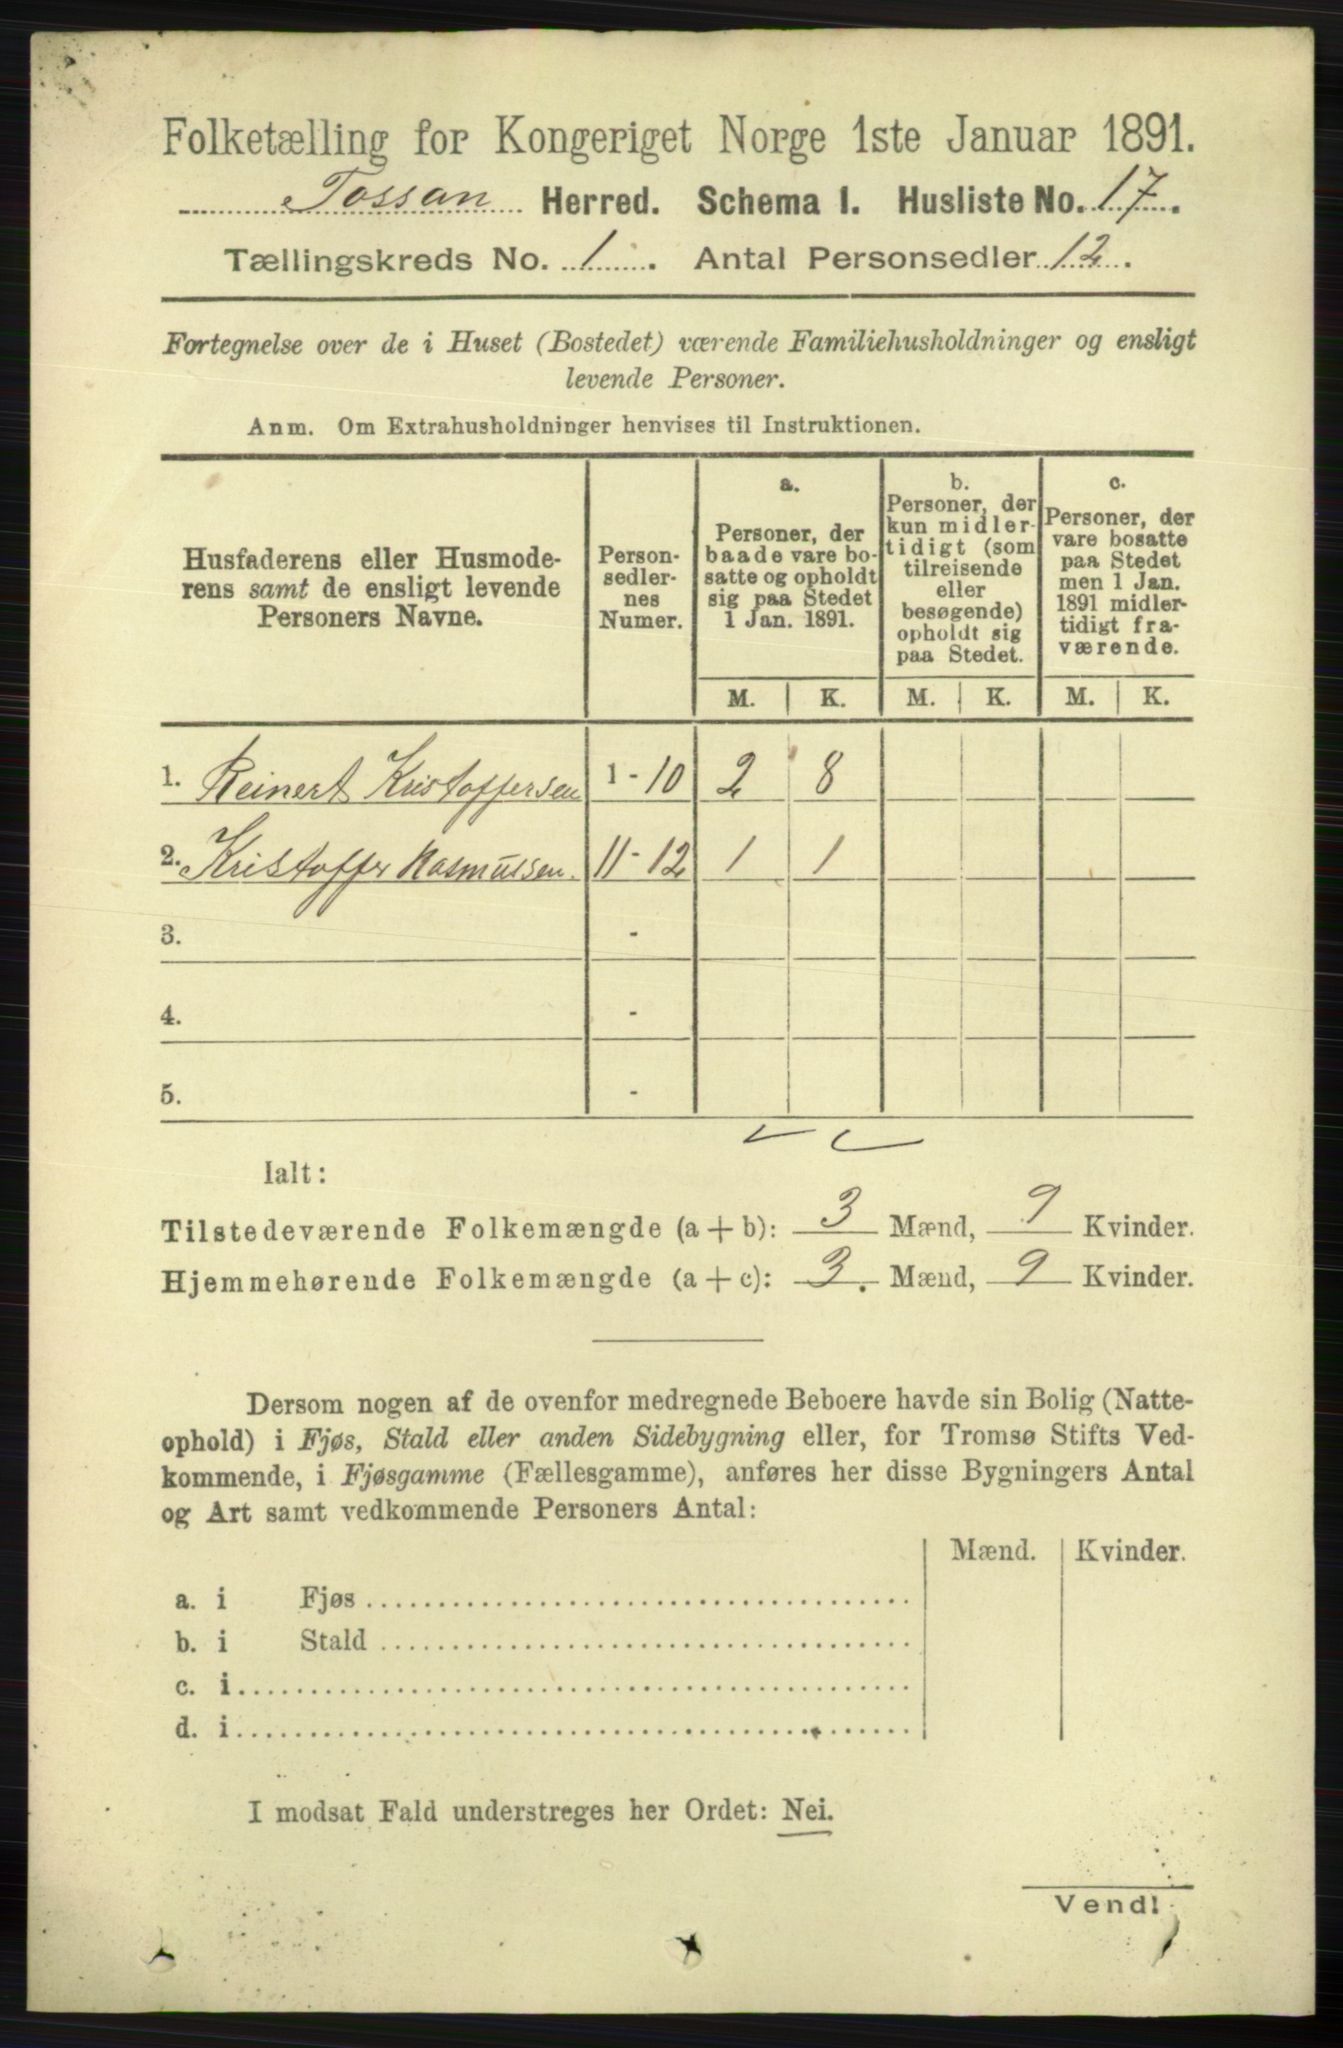 Folketælling for Kongeriget Norge 1ste Januar 1891.
Fossan Herred. Schema I. Husliste No. 17.
Tællingskreds No. 1. Antal Personsedler 12.
Fortegnelse over de i Huset (Bostedet) værende Familiehusholdninger og ensligt
levende Personer.
Anm. Om Extrahusholdninger henvises til Instruktionen.
Husfaderens eller Husmode-
rens samt de ensligt levende
Personers Navne.
Person-
sedler-
nes
Numer.
a.
Personer, der
baade vare bo-
satte og opholdt
sig paa Stedet
1 Jan. 1891.
b.
Personer, der
kun midler-
tidigt (som
tilreisende
eller
besøgende)
opholdt sig
paa Stedet.
c.
Personer, der
vare bosatte
paa Stedet
men 1 Jan.
1891 midler-
tidigt fra-
værende.
M. K. M. K. M. K.
1. Reinert Kristoffersen 1 - 10 2 8
2. Kristoffer Rasmussen. 11 - 12 1 1
3. -
4. -
5. -
Ialt:
Tilstedeværende Folkemængde (a + b): 3 Mænd, 9 Kvinder.
Hjemmehørende Folkemængde (a + c): 3. Mænd, 9 Kvinder.
Dersom nogen af de ovenfor medregnede Beboere havde sin Bolig (Natte-
ophold) i Fjøs, Stald eller anden Sidebygning eller, for Tromsø Stifts Ved-
kommende, i Fjøsgamme (Fællesgamme), anføres her disse Bygningers Antal
og Art samt vedkommende Personers Antal:
Mænd. Kvinder.
a. i Fjøs
b. i Stald
c. i
d. i
I modsat Fald understreges her Ordet: Nei.
Vend!